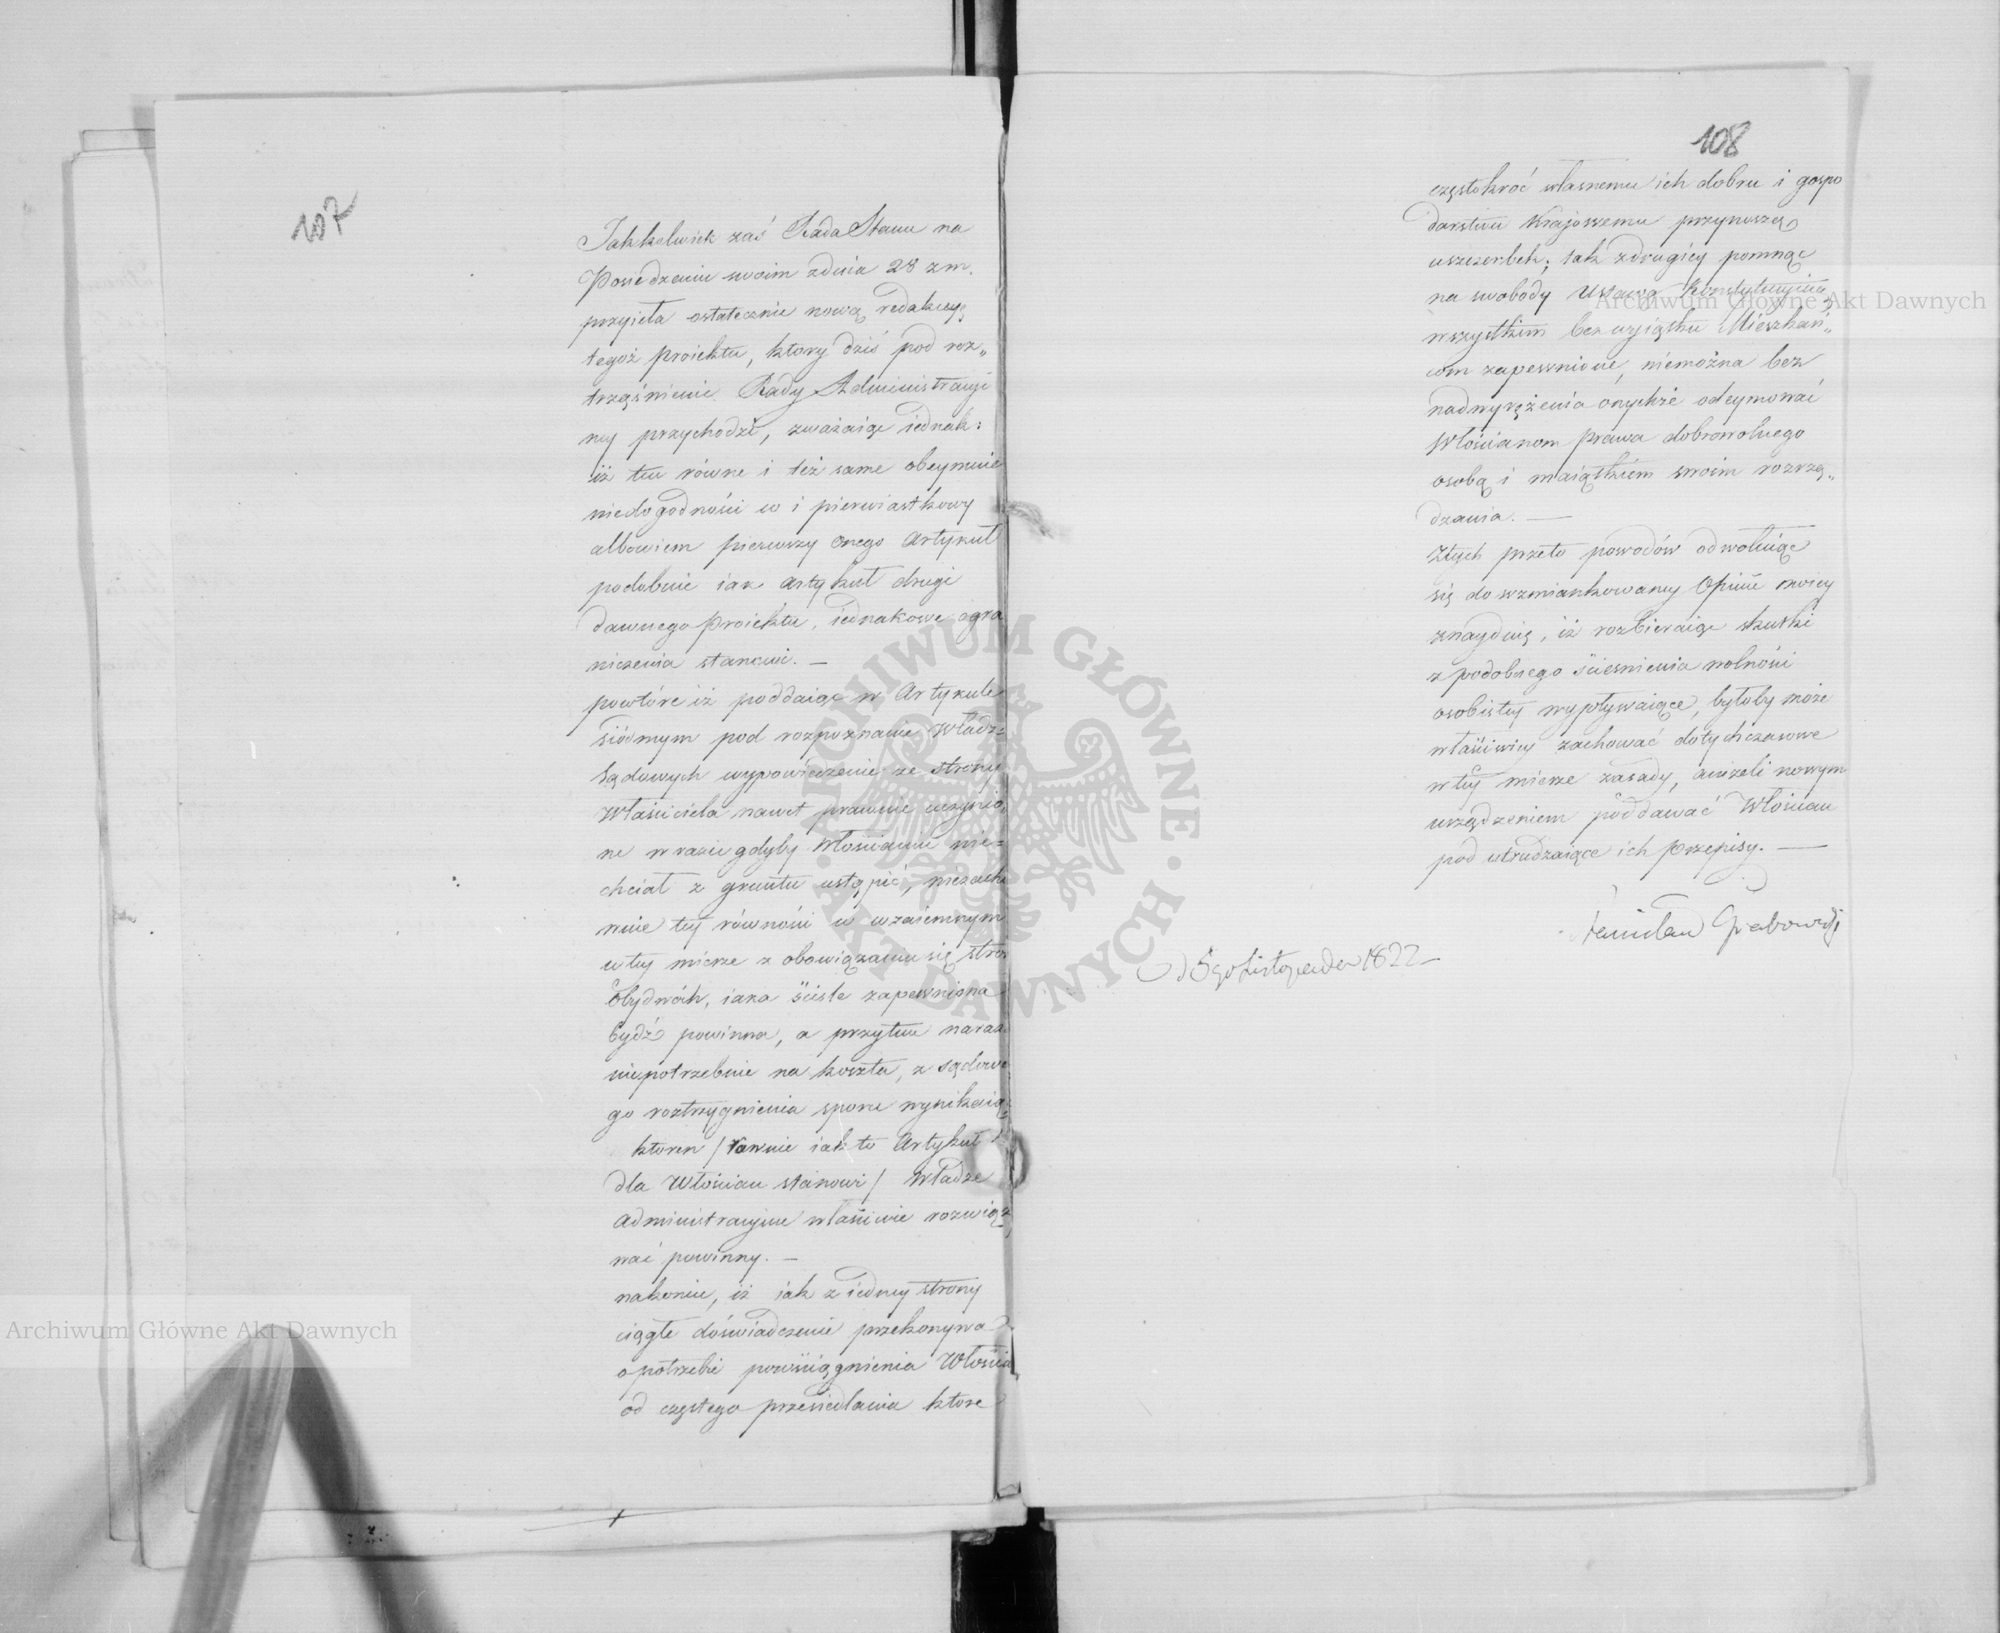 107
Jakkolwiek zaś Rada Stanu na
Posiedzeniu swoim zdnia 28 z m.
przyięła ostatecznie nową redakcyą
tegoż proiektu, ktory dziś pod roz„
trząśnienie Rady Administracyi
ney przychodzi, zważaiąc iednak:
iż tu równe i też same obeymuie
niedogodności co i pierwiastkowy
albowiem pierwszy onego Artykuł
podobnie iak artykuł drugi
dawnego Proiektu, iednakowe ogra
niczenia stanowi. —
powtóre iż poddaiąc w Artykule
siódmym pod rozpoznanie Władz
Sądowych wypowiedzenie ze strony
Właściciela nawet prawnie uczynio„
ne w razie gdyby Włościanin nie„
chciał z gruntu ustąpić, niezacho
wuie tey równości w wzaiemnym
w tey mierze z obowiązaniu się stron
obydwóch, iaka ściśle zapewniona
bydź powinna, a przytem naraża
niepotrzebnie na koszta, z sądowe
go roztrzygnienia sporu wynikaią„
ktoren / rownie iak to Artykuł
dla Włościan stanowi / Władze
Administracyine właściwie rozwiązy
wać powinny. —
nakoniec, iż iak z iedney strony
ciągłe doświadczenie przekonywa
o potrzebie powściągnienia Włościan
od częstego przesiedlania ktore
108
częstokroć własnemu ich dobru i gospo
darstwu Kraiowemu przynoszą
uszczerbek; tak zdrugiéy pomnąc
na swobody Ustawą Konstytucyiną
wszystkim bez wyiątku Mieszkań„
com zapewnione, niemożna bez
nadwyrężenia onychże odeymować
Włościanom prawa dobrowolnego
osobą i maiątkiem swoim rozrzą„
dzania. —
Ztych przeto powodów odwołuiąc
się do wzmiankowaney Opinii moiey
znayduię, iż rozbieraiąc skutki
z podobnego ścieśnienia wolności
osobistey wypływaiące, byłoby może
właściwiey zachować dotychczasowe
w tey mierze zasady, aniżeli nowym
urządzeniem poddawać Włościan
pod utrudzaiące ich przepisy. —
Stanisław Grabowski
d 5go Listopada 1822
Archiwum Główne Akt Dawnych
Archiwum Główne Akt Dawnych
ARCHIWUM GŁÓWNE · AKT DAWNYCH ·